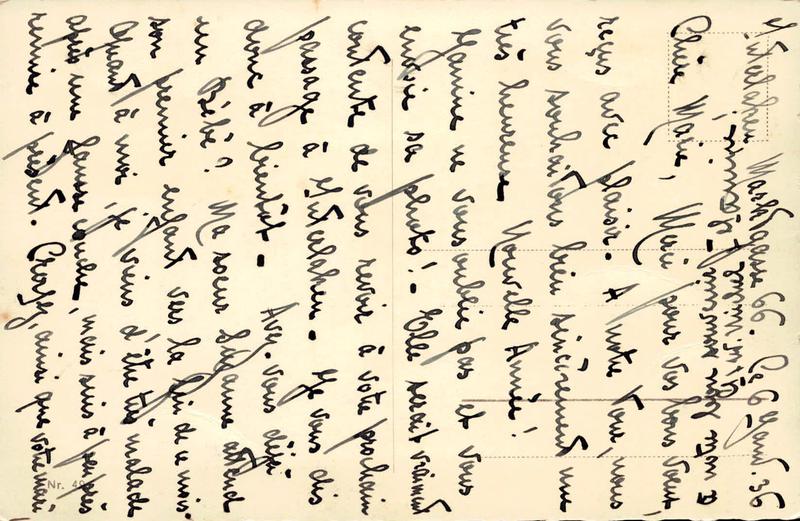 Marktgasse 66. Ce 6 Janv. 36
Chère Marie, Merci pour vos bons vœux
reçus avec plaisir. A notre tour, nous
vous souhaitons bien sincèrement une
très heureuse Nouvelle Année!
Janine ne vous oublie pas et vous
envoie sa photo! - Elle serait vraiment
contente de vous revoir à votre prochain
passage à . Je vous dis
donc à bientôt. Avez-vous déjà
un Bébé? Ma soeur Suzanne attend
son premier enfant vers la fin de ce mois.
Quant à moi, je viens d'être très malade
après une fausse couche, mais suis à peu près
remise à présent. ainsi que votre mari
Nr. 40